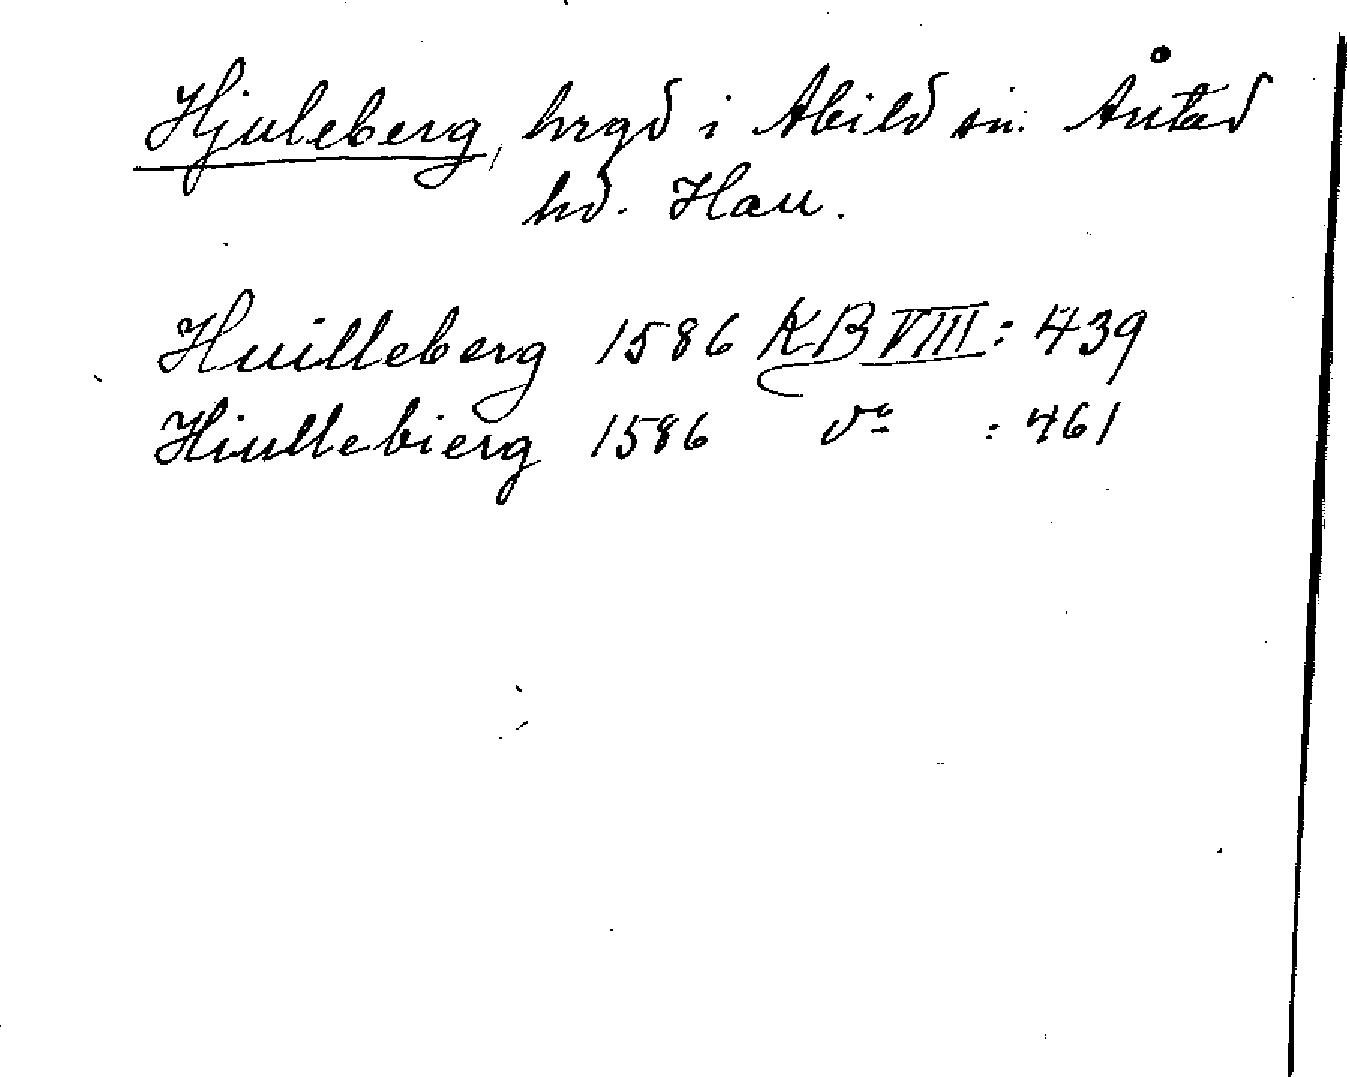 Hjuleberg, hrgd i Abild sn. Årstad
hd. Hall.
Huilleberg 1586 KB VIII: 439
Hiullebierg 1586 dº : 461